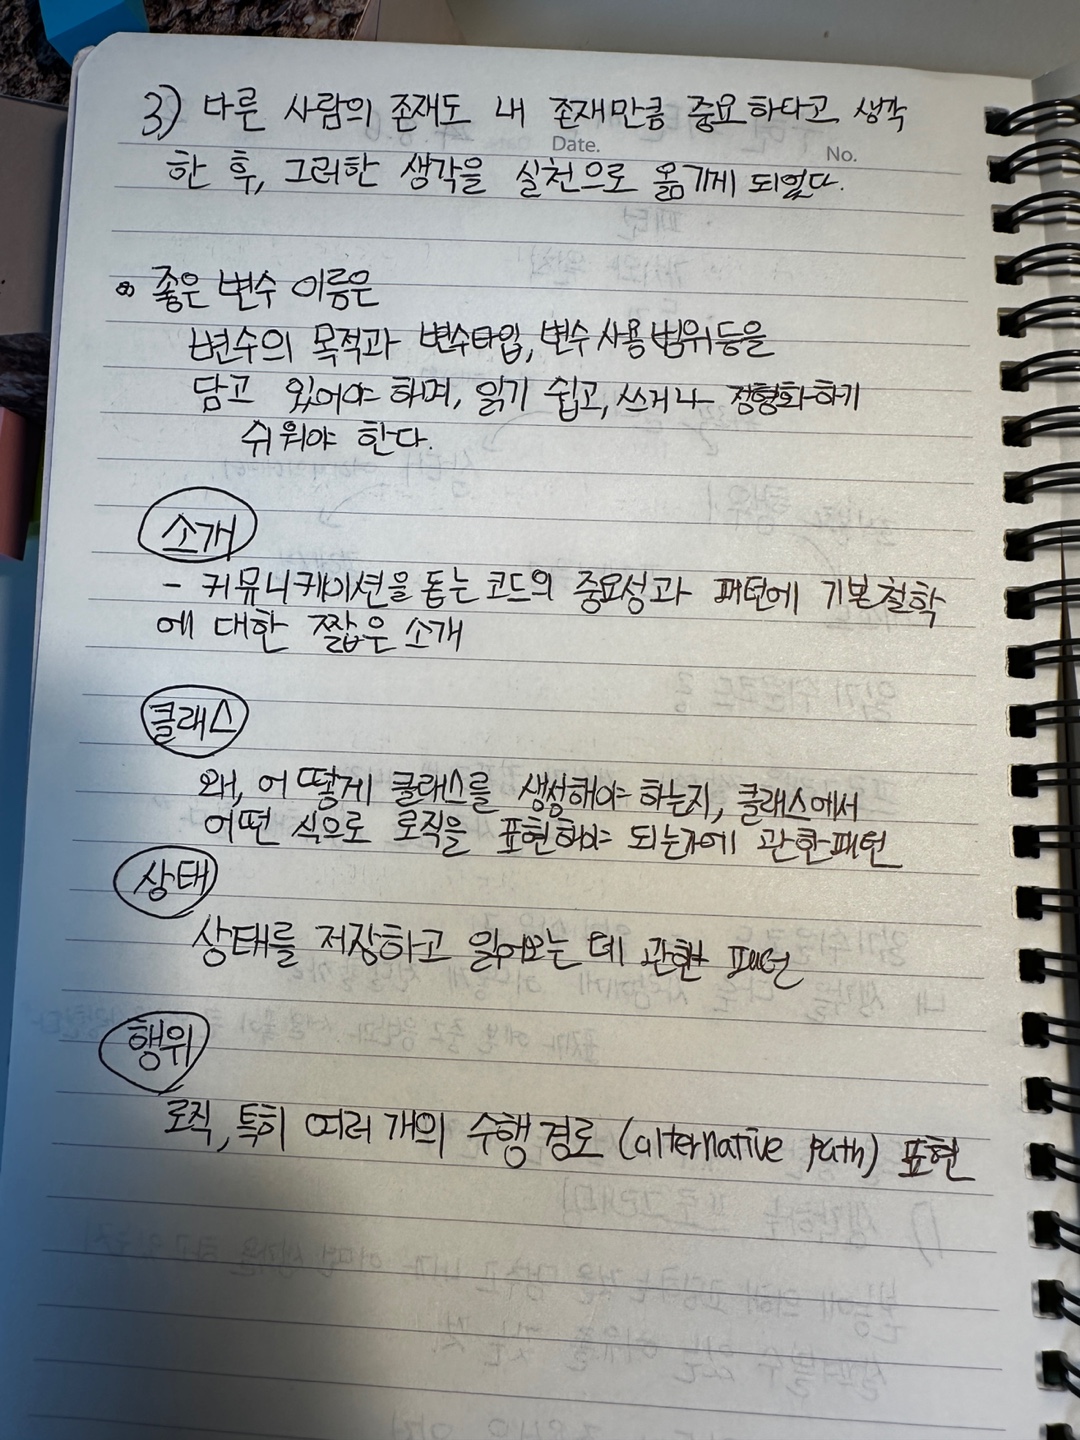 3) 다른 사람의 존재도 내 존재만큼 중요하다고 생각
Date. No.
한 후, 그러한 생각을 실천으로 옮기게 되었다.
좋은 변수 이름은
변수의 목적과 변수타입, 변수 사용 범위등을
담고 있어야 하며, 읽기 쉽고, 쓰거나 정형화하기
쉬워야 한다.
소개
- 커뮤니케이션을 돕는 코드의 중요성과 패턴에 기본철학
에 대한 짧은 소개
클래스
왜, 어떻게 클래스를 생성해야 하는지, 클래스에서
어떤 식으로 로직을 표현해야 되는지에 관한 패턴
상태
상태를 저장하고 읽어오는 데 관한 패턴
행위
로직, 특히 여러 개의 수행 경로 (alternative path) 표현